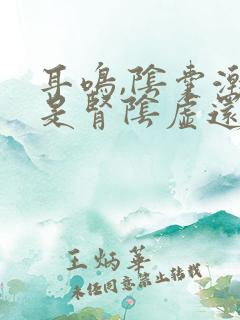 耳鳴,陰囊潮
是腎陰虛還
王炳華
未经同意禁止转载